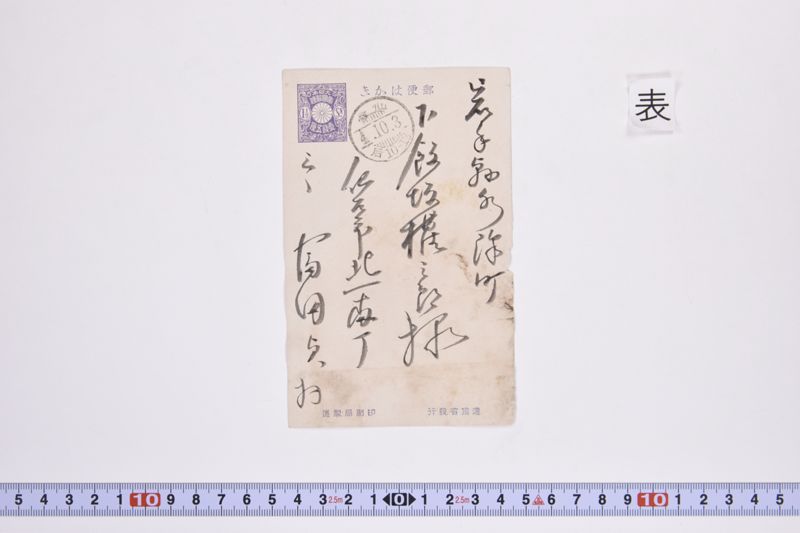 表
郵便はかき
岩手縣水澤町
下飯坂權三郎様
仙台市北一番丁
富田
10.3
逓信省發行
印刷局製造
5 4 3 2 1 10 9 8 7 6 5 4 3 2.5m 2 1 0 1 2 2.5m 3 4 5 6 7 8 9 10 1 2 3 4 5